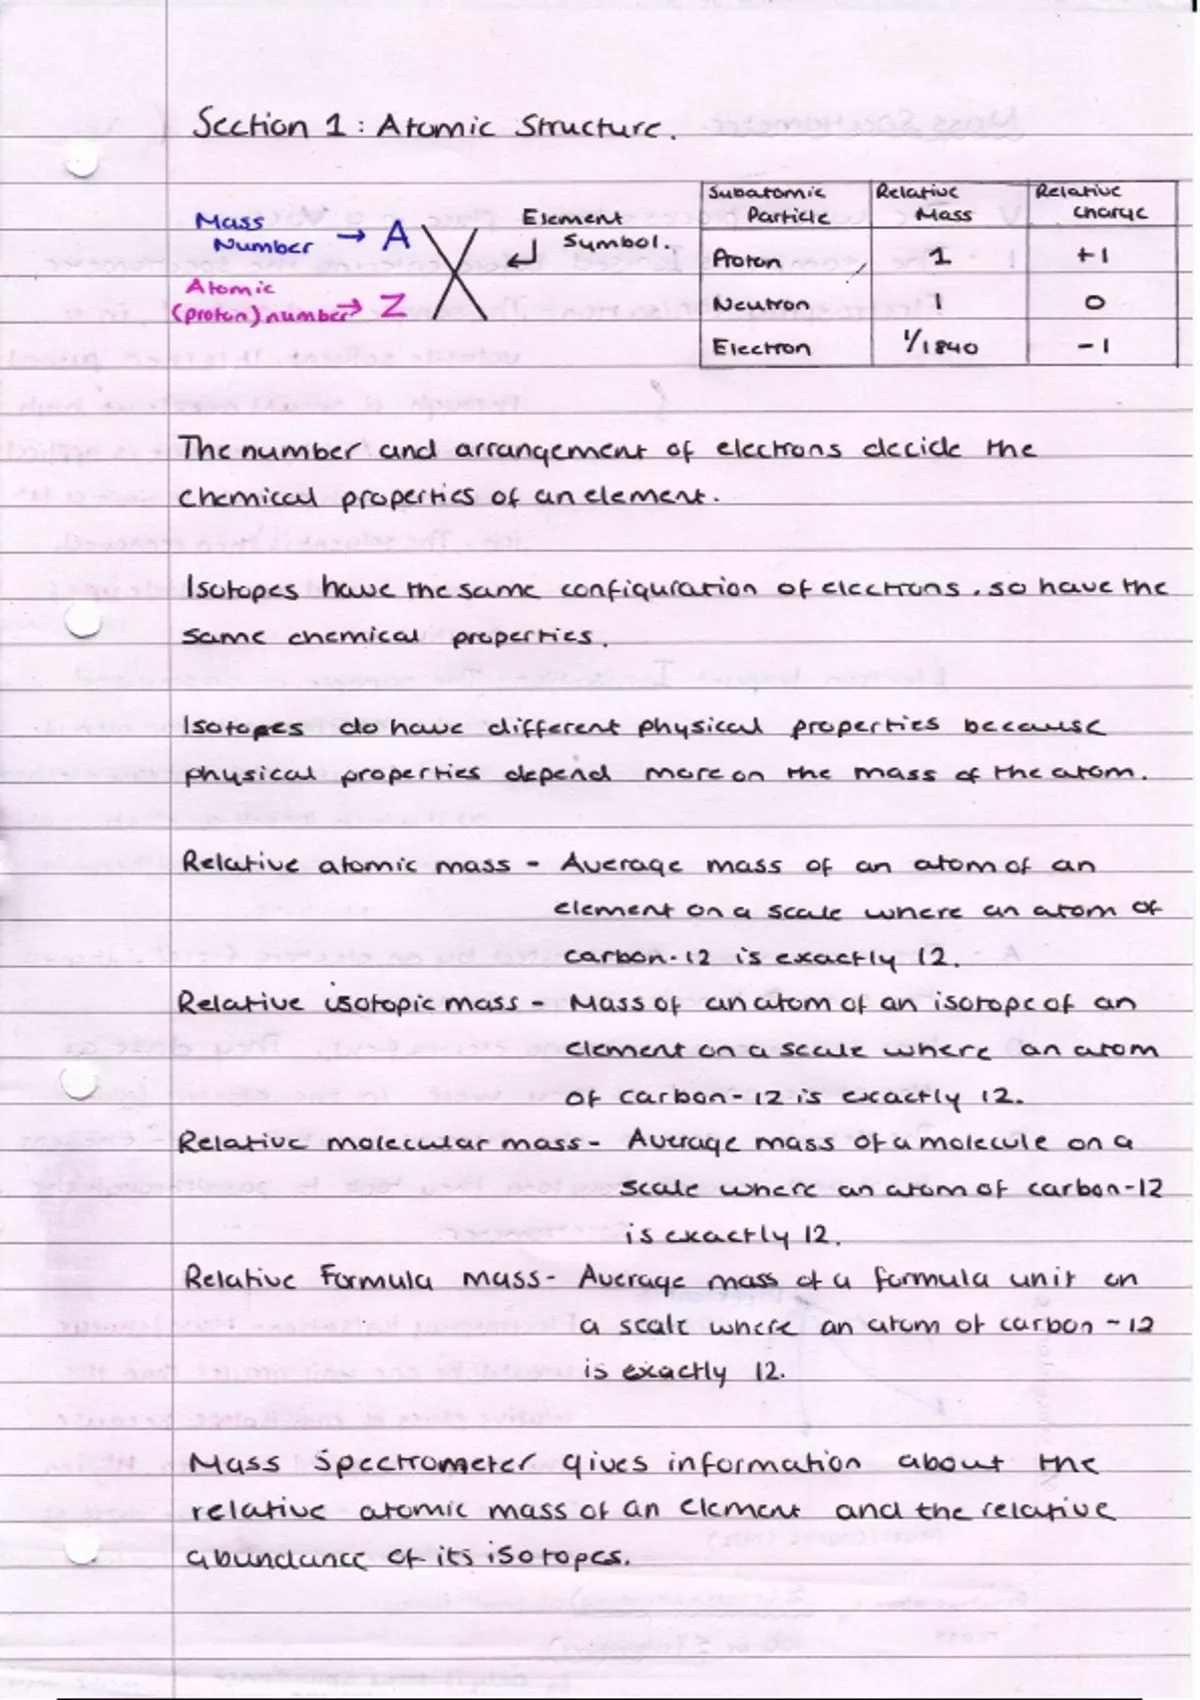 Section 1 : Atomic Structure.
Mass
Number → A
Atomic
(proton) number → Z
X
Element
Symbol.
Subatomic Particle | Relative Mass | Relative Charge
Proton | 1 | +1
Neutron | 1 | 0
Electron | 1/1840 | -1
The number and arrangement of electrons decide the
chemical properties of an element.
Isotopes have the same configuration of electrons, so have the
same chemical properties.
Isotopes do have different physical properties because
physical properties depend more on the mass of the atom.
Relative atomic mass - Average mass of an atom of an
element on a scale where an atom of
carbon-12 is exactly 12.
Relative isotopic mass - Mass of an atom of an isotope of an
element on a scale where an atom
of carbon-12 is exactly 12.
Relative molecular mass - Average mass of a molecule on a
scale where an atom of carbon-12
is exactly 12.
Relative Formula mass - Average mass of a formula unit on
a scale where an atom of carbon-12
is exactly 12.
Mass Spectrometer gives information about the
relative atomic mass of an element and the relative
abundance of its isotopes.